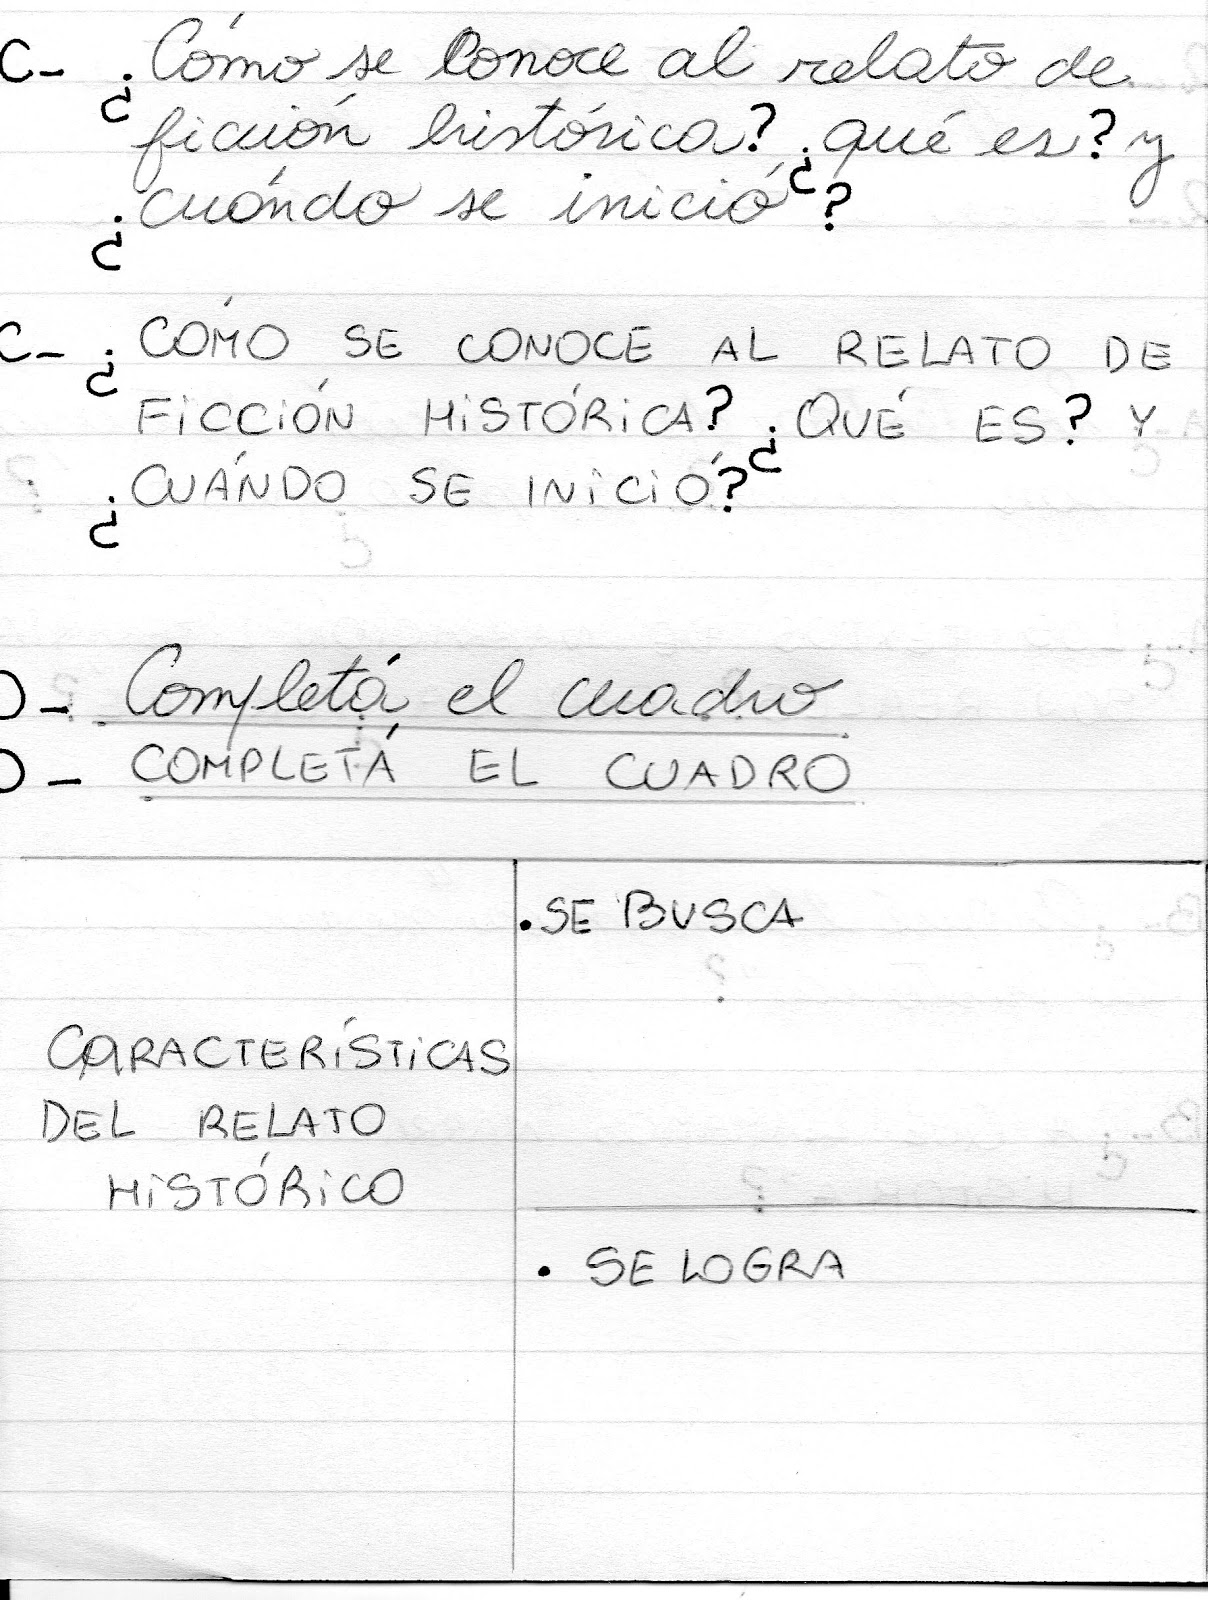 C- ¿Cómo se conoce al relato de
ficción histórica? ¿qué es? y
¿cuándo se inició?
C- ¿CÓMO SE CONOCE AL RELATO DE
FICCIÓN HISTÓRICA? ¿QUÉ ES? Y
¿CUÁNDO SE INICIÓ?
D- Completá el cuadro
D- COMPLETÁ EL CUADRO
CARACTERÍSTICAS
DEL RELATO
HISTÓRICO
• SE BUSCA
• SE LOGRA